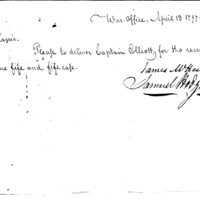 War Office, April 18 1797
Please to deliver Captain Elliott, for the
one fife and fife case.
James McHen
Samuel Hodg